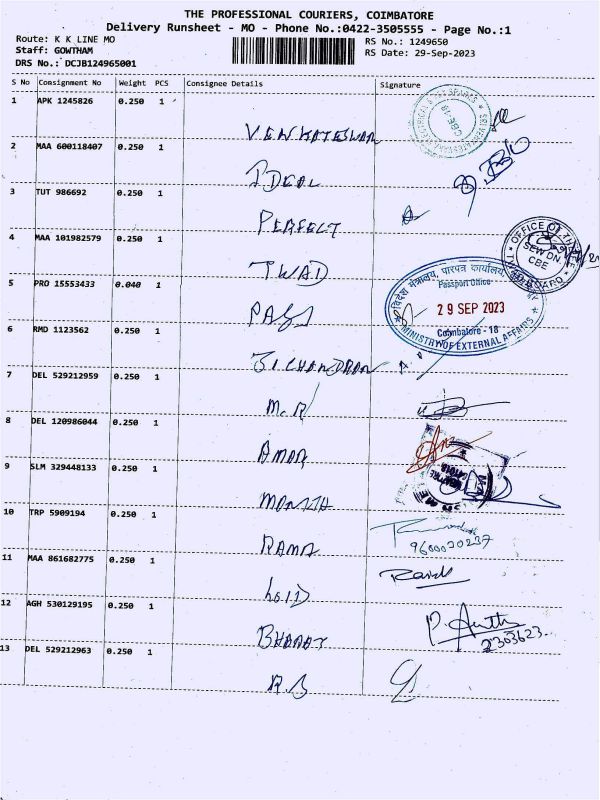 THE PROFESSIONAL COURIERS, COIMBATORE
Delivery Runsheet - MO - Phone No.:0422-3505555 - Page No.:1
Route: K K LINE MO
RS No.: 1249650
Staff: GOWTHAM
RS Date: 29-Sep-2023
DRS No.: DCJB124965001
S No Consignment No Weight PCS Consignee Details Signature
1 APK 1245826 0.250 1
VENKATESWAR
CBE-18
2 MAA 600118407 0.250 1
IDEAL
3 TUT 986692 0.250 1
PERFECT
4 MAA 101982579 0.250 1
TWAD
OFFICE OF THE
SEW DN
CBE
TWAD BOARD
5 PRO 15553433 0.040 1
PASS
विदेश मंत्रालय, पारपत्र कार्यालय
Passport Office
29 SEP 2023
Coimbatore - 18
MINISTRY OF EXTERNAL AFFAIRS
6 RMD 1123562 0.250 1
7 DEL 529212959 0.250 1
M.R
8 DEL 120986044 0.250 1
AMAR
9 SLM 329448133 0.250 1
10 TRP 5909194 0.250 1
RAMA
9600030237
11 MAA 861682775 0.250 1
12 AGH 530129195 0.250 1
BHARAT
2303623
13 DEL 529212963 0.250 1